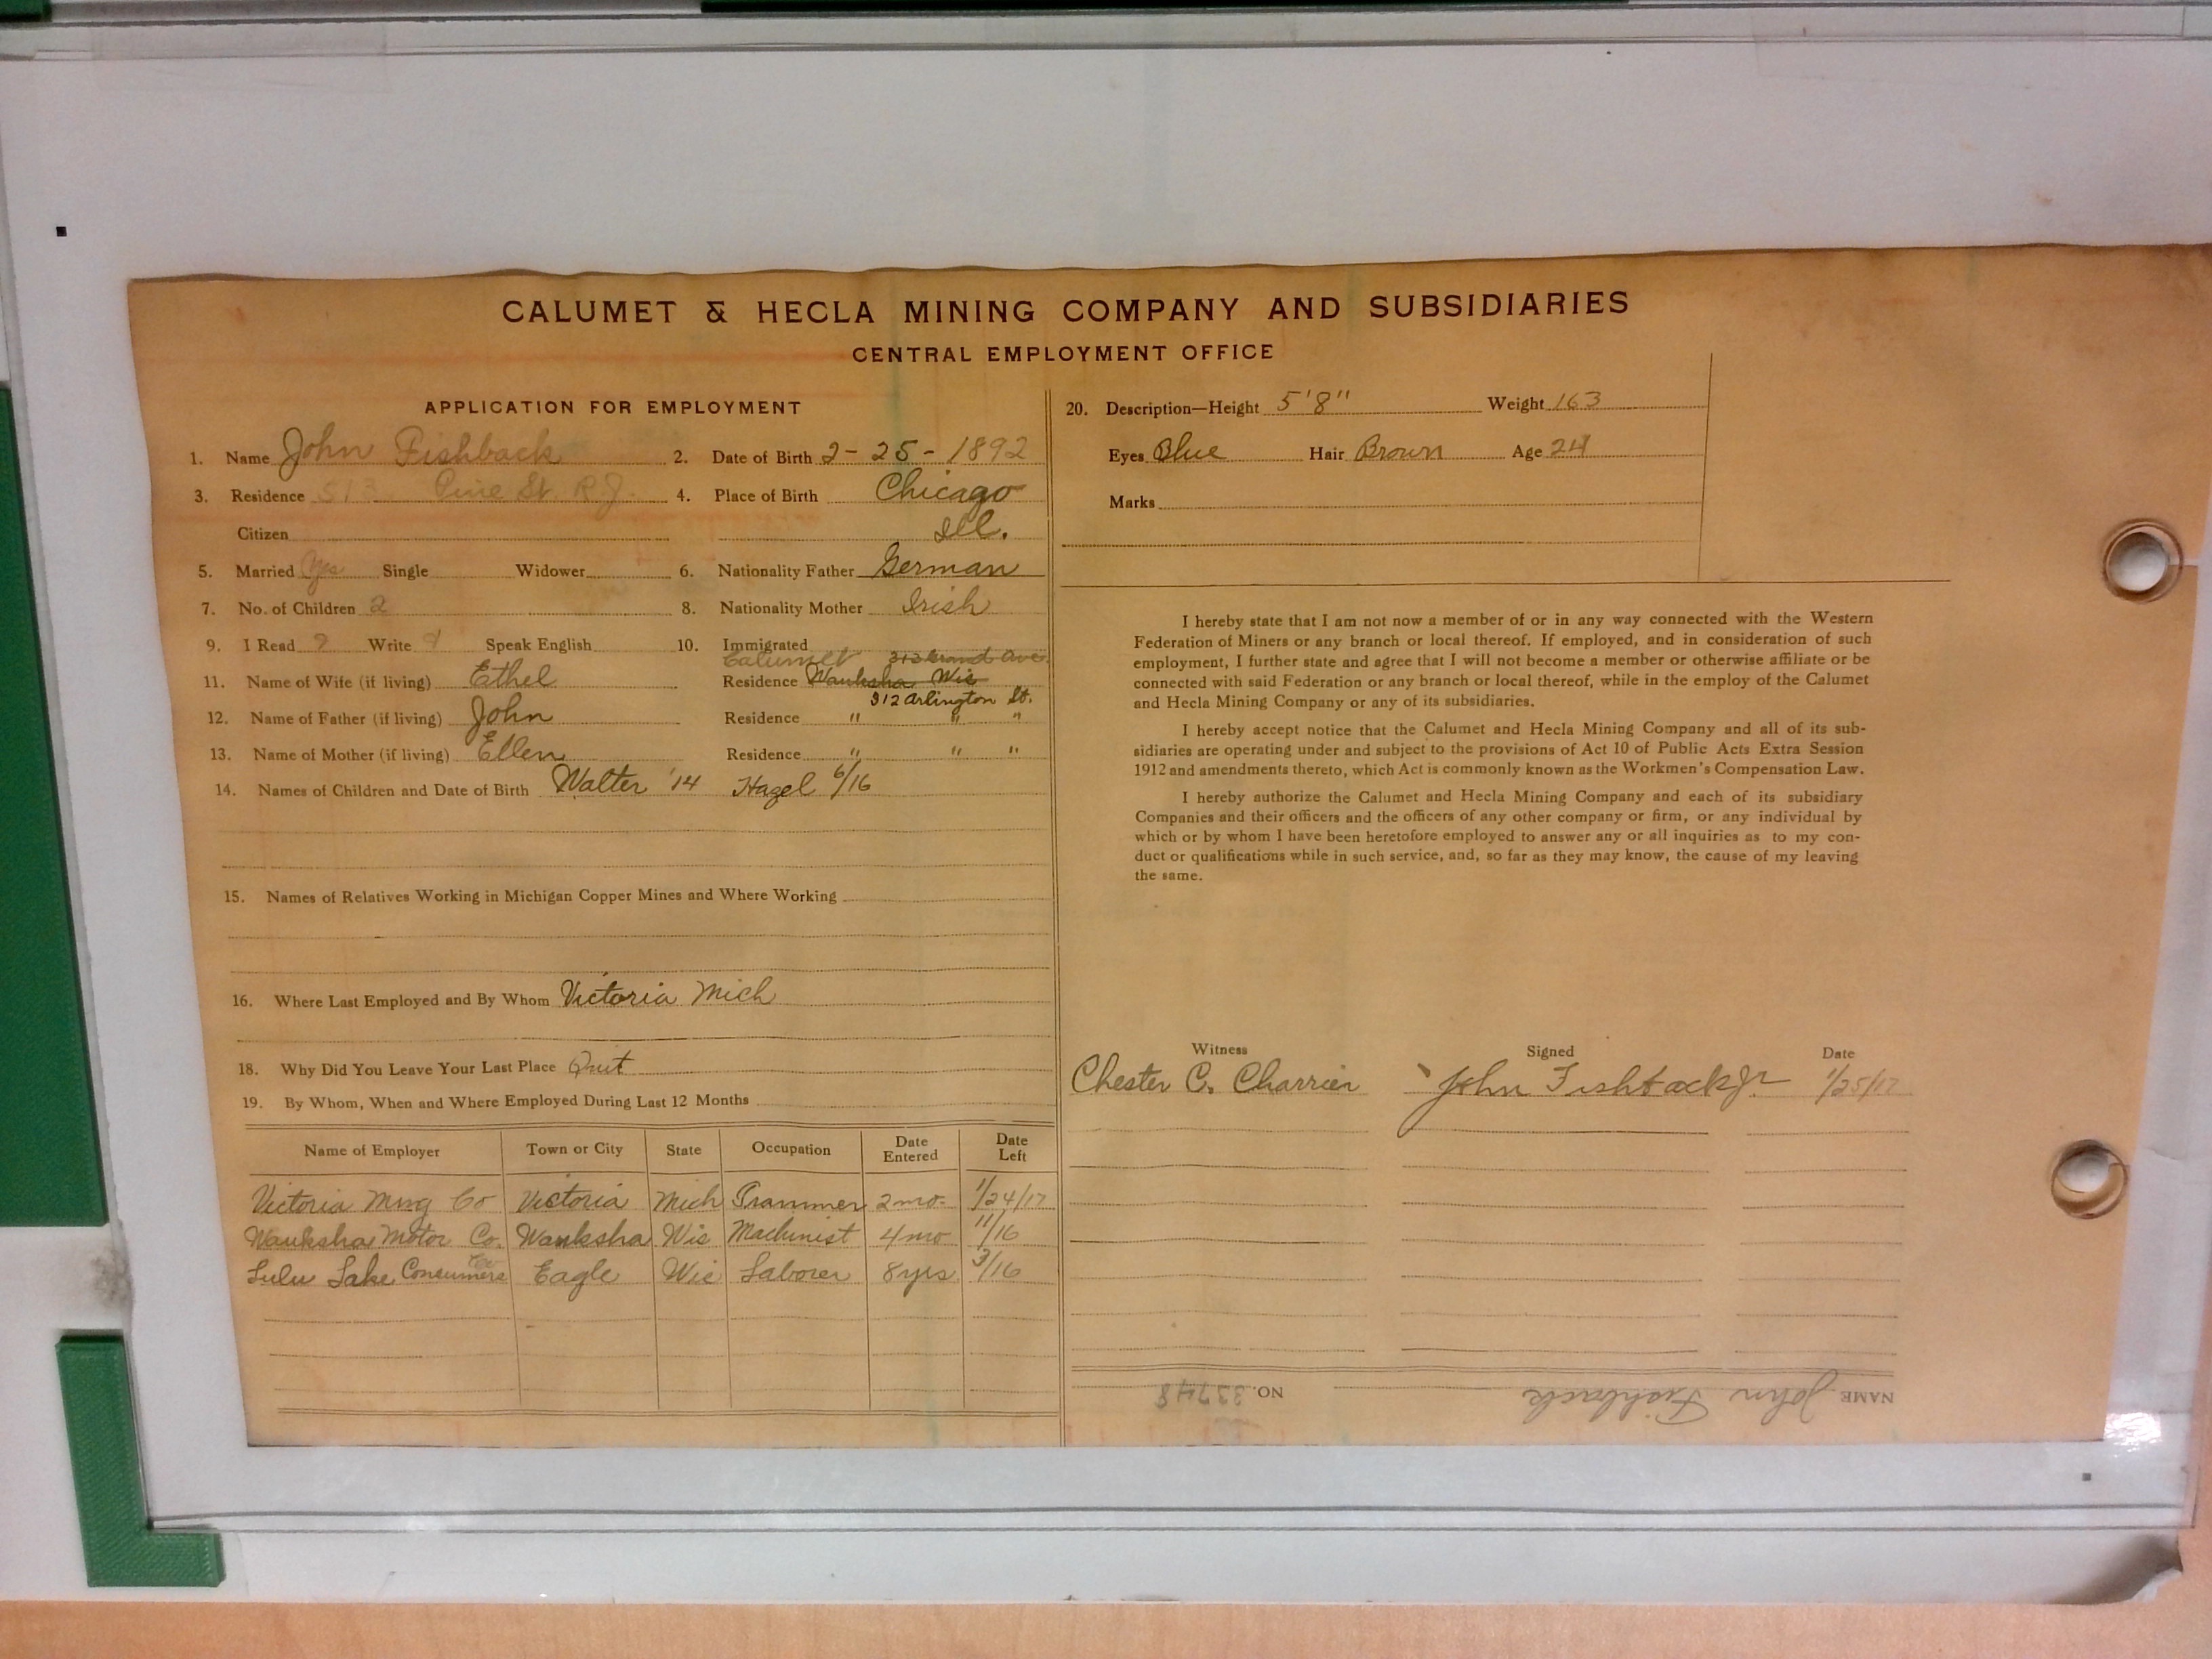 CALUMET & HECLA MINING COMPANY AND SUBSIDIARIES
CENTRAL EMPLOYMENT OFFICE
APPLICATION FOR EMPLOYMENT
1. Name John Fishback 2. Date of Birth 2-25-1892
3. Residence 513 Pine St. R.J. 4. Place of Birth Chicago
Citizen Ill.
5. Married Yes Single Widower 6. Nationality Father German
7. No. of Children 2 8. Nationality Mother Irish
9. I Read Write Speak English 10. Immigrated
Calumet 312 Grand Ave.
11. Name of Wife (if living) Ethel Residence Wauksha Wis
312 Arlington St.
12. Name of Father (if living) John Residence " " "
13. Name of Mother (if living) Ellen Residence " " "
14. Names of Children and Date of Birth Walter '14 Hazel 6/16
15. Names of Relatives Working in Michigan Copper Mines and Where Working
16. Where Last Employed and By Whom Victoria Mich
18. Why Did You Leave Your Last Place Quit
19. By Whom, When and Where Employed During Last 12 Months
Name of Employer Town or City State Occupation Date Entered Date Left
Victoria Mng Co Victoria Mich Trammer 2 mo. 1/24/17
Wauksha Motor Co. Wauksha Wis Machinist 4 mo 11/16
Lulu Lake Consumers Co Eagle Wis Laborer 8 yrs 3/16
20. Description—Height 5'8" Weight 163
Eyes Blue Hair Brown Age 24
Marks
I hereby state that I am not now a member of or in any way connected with the Western
Federation of Miners or any branch or local thereof. If employed, and in consideration of such
employment, I further state and agree that I will not become a member or otherwise affiliate or be
connected with said Federation or any branch or local thereof, while in the employ of the Calumet
and Hecla Mining Company or any of its subsidiaries.
I hereby accept notice that the Calumet and Hecla Mining Company and all of its sub-
sidiaries are operating under and subject to the provisions of Act 10 of Public Acts Extra Session
1912 and amendments thereto, which Act is commonly known as the Workmen's Compensation Law.
I hereby authorize the Calumet and Hecla Mining Company and each of its subsidiary
Companies and their officers and the officers of any other company or firm, or any individual by
which or by whom I have been heretofore employed to answer any or all inquiries as to my con-
duct or qualifications while in such service, and, so far as they may know, the cause of my leaving
the same.
Witness Signed Date
Chester C. Charrier John Fishback Jr 1/25/17
NAME John Fishback NO. 33748